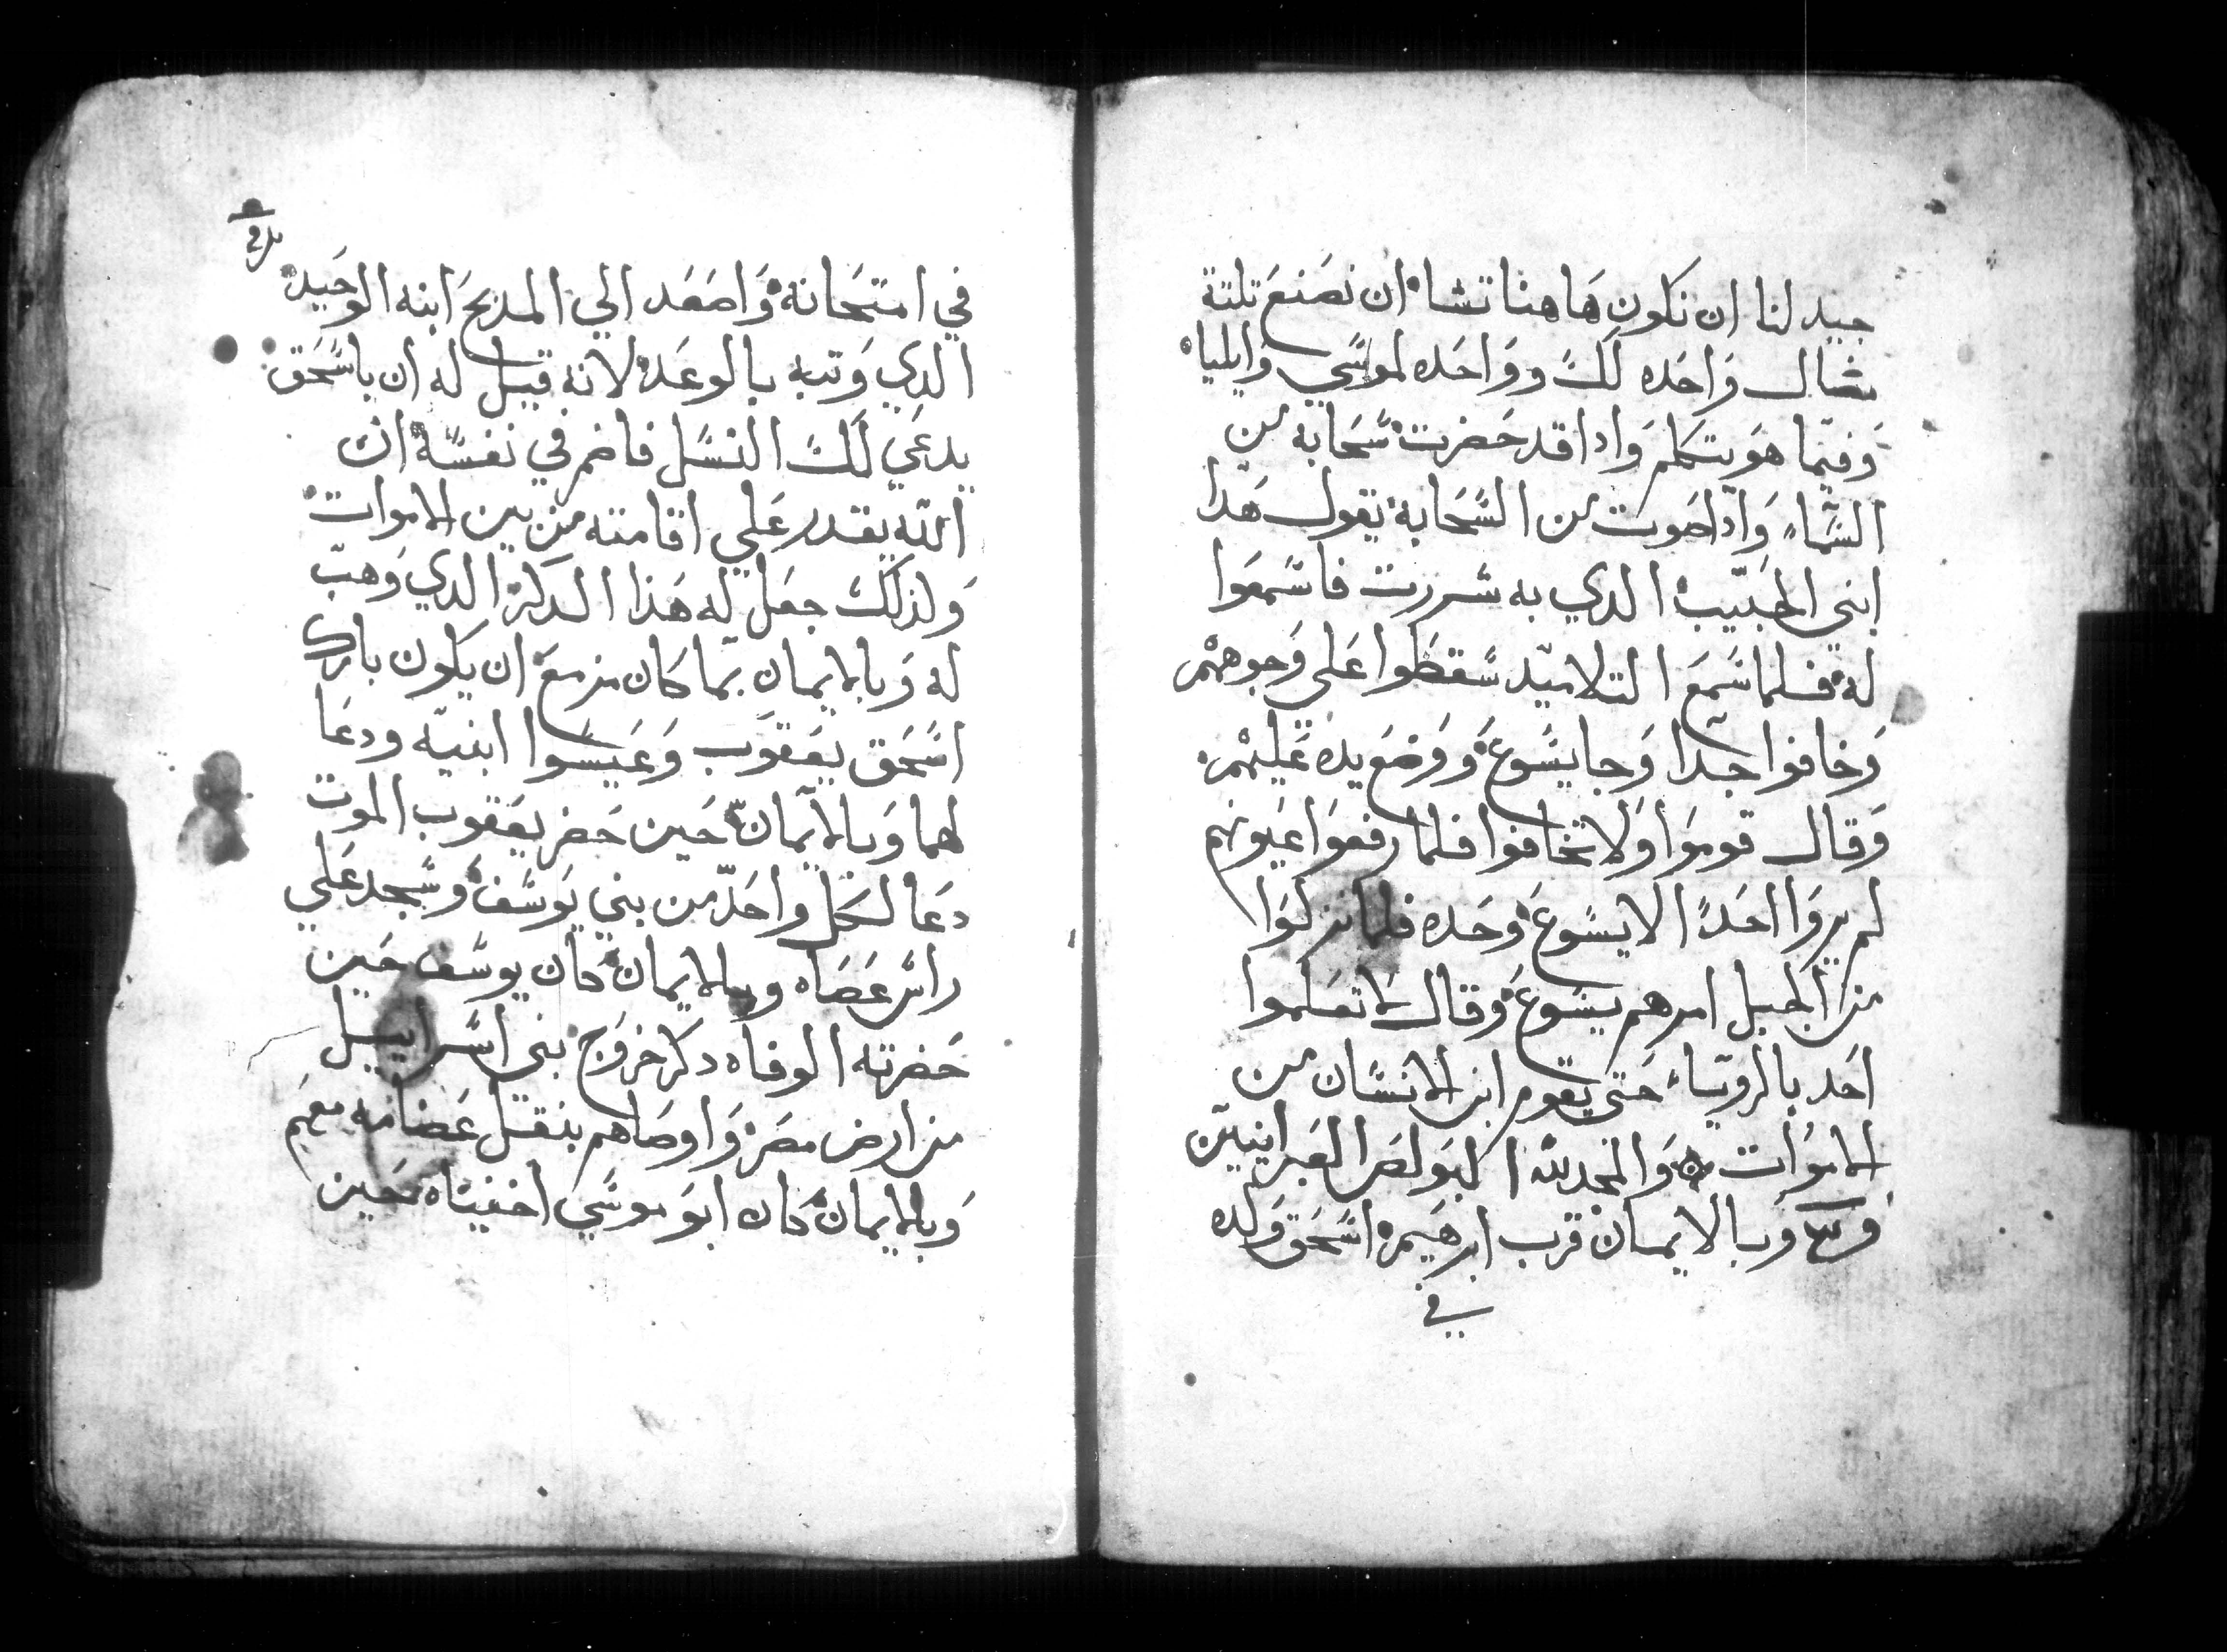 جيد لنا ان نكون هاهنا تشا ان نصنع تلتة
مضال واحده لك وواحده لموسي وايليا
وفيما هو يتكلم واداقد حضرت سحابه من
السماء واداصوت من السحابة يقول هدا
ابني الحبيب الدي به سررت فاسمعوا
له فلما سمع التلاميد سقطوا على وجوههم
وخافوا جدا وجا يسوع ووضع يده عليهم
وقال قوموا ولا تخافوا فلما رفعوا عيونهم
لم يروا احدًا الا يسوع وحده فلما نزلوا
من الجبل امرهم يسوع وقال لا تعلموا
احد بالرويا حتى يقوم ابن الانسان من
الاموات والمجد لله البولص العبرانيين
وبالايمان قرب ابرهيم اسحق ولده
في
في امتحانة واصعد الي المدبح ابنه الوحيد
الدي وتبه بالوعد لانه قيل له ان باسحق
يدعي لك النسل فاضمر في نفسه ان
الله يقدر علي اقامته من بين الاموات
ولذلك جعل له هذا الدكر الدي وهب
له وبالايمان بما كان مزمع ان يكون بارك
اسحق يعقوب وعيسوا ابنيه ودعا
لهما وبالايمان حين حضر يعقوب الموت
دعا لكل واحد من بني يوسف وسجد علي
راس عصاه وبالايمان كان يوسف حين
حضرته الوفاه دكر خروج بني اسراييل
من ارض مصر واوصاهم بنقل عضامه معهم
وبالايمان كان ابو موسي اخفياه حين